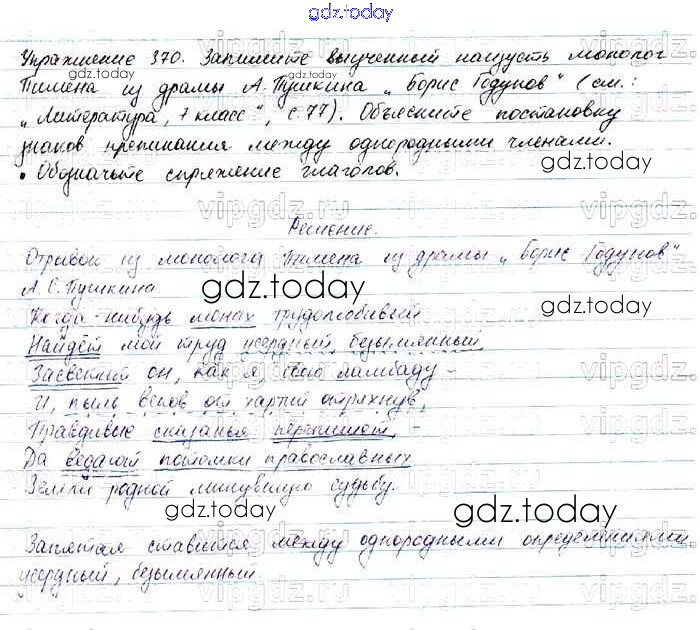 gdz.today
Упражнение 370. Запишите выученный наизусть монолог
Пимена из драмы А. Пушкина „Борис Годунов" (см.:
„Литература, 7 класс", с. 77). Объясните постановку
знаков препинания между однородными членами.
• Обозначьте спряжение глаголов.
Решение.
Отрывок из монолога Пимена из драмы „Борис Годунов"
А. С. Пушкина
Когда-нибудь монах трудолюбивый
Найдёт мой труд усердный, безымянный,
Засветит он, как я, свою лампаду -
И, пыль веков от хартий отряхнув,
Правдивые сказанья перепишет, -
Да ведают потомки православных
Земли родной минувшую судьбу.
Запятая ставится между однородными определениями
усердный, безымянный.